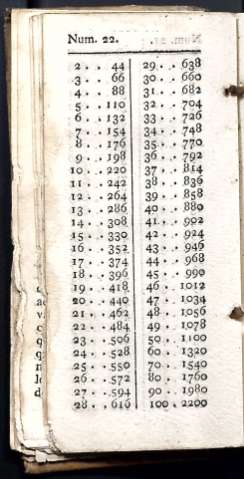 Num. 22.
2 . . 44
3 . . 66
4 . . 88
5 . . 110
6 . . 132
7 . . 154
8 . . 176
9 . . 198
10 . . 220
11 . . 242
12 . . 264
13 . . 286
14 . . 308
15 . . 330
16 . . 352
17 . . 374
18 . . 396
19 . . 418
20 . . 440
21 . . 462
22 . . 484
23 . . 506
24 . . 528
25 . . 550
26 . . 572
27 . . 594
28 . . 616
29 . . 638
30 . . 660
31 . . 682
32 . . 704
33 . . 726
34 . . 748
35 . . 770
36 . . 792
37 . . 814
38 . . 836
39 . . 858
40 . . 880
41 . . 902
42 . . 924
43 . . 946
44 . . 968
45 . . 990
46 . . 1012
47 . . 1034
48 . . 1056
49 . . 1078
50 . . 1100
60 . . 1320
70 . . 1540
80 . . 1760
90 . . 1980
100 . . 2200